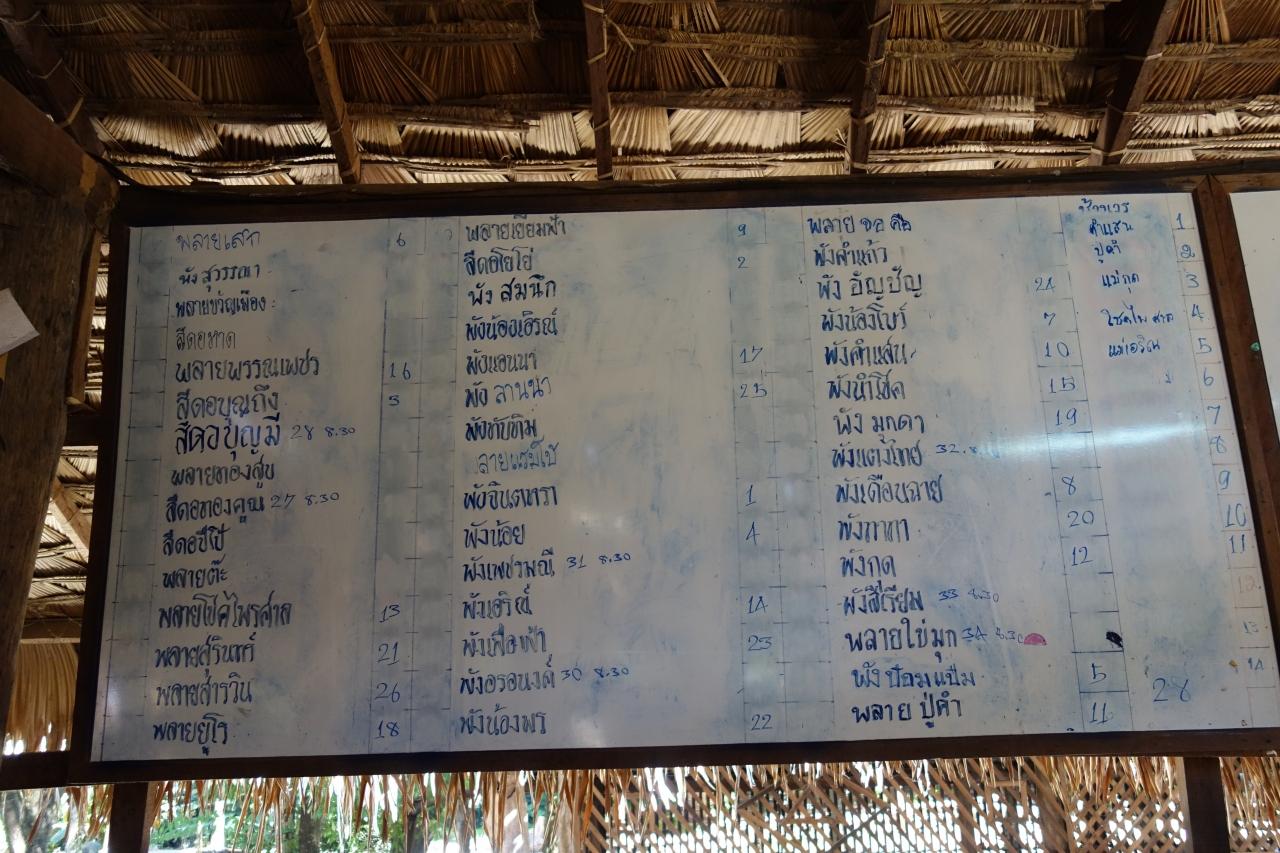 พลายเสก 6
พัง สุวรรณา
พลายขวัญเมือง
สีดอหาด
พลายพรรณเพชร 16
สีดอบุญถึง 3
สีดอบุญมี 28 8.30
พลายทองสุข
สีดอทองคูณ 27 8.30
สีดอปีโป้
พลายต๊ะ
พลายโชคไพรศาล 13
พลายสุรินทร์ 21
พลายสารวิน 26
พลายยูโร 18
พลายเยี่ยมฟ้า 9
สีดอโยโย่ 2
พัง สมนึก
พังน้องเอิรณ์
พังแอนนา 17
พัง ลานนา 25
พังทับทิม
พังจินตหรา 1
พังน้อย 4
พังเพชรมณี 31 8.30
พังเอริณ์ 14
พังเฟื่องฟ้า 23
พังอรอนงค์ 30 8.30
พังน้องพร 22
พลาย จอ
พังคำแก้ว
พัง อัญปัญ 24
พังน้องโบว์ 7
พังคำแสน 10
พังนำโชค 15
พัง มุกดา 19
พังแตงไทย 32
พังเดือนฉาย 8
พังกากา 20
พังกุด 12
พังสีเรียม 33 8.30
พลายไข่มุก 34 8.30
พัง ป๊อมแป๊ม 5
พลาย ปู่คำ 11
ช้างเวร
คำแสน 1
ปู่คำ 2
แม่กุด 3
โชคไพ ศาล 4
แม่เอริณ 5
6
7
8
9
10
11
12
13
14
28